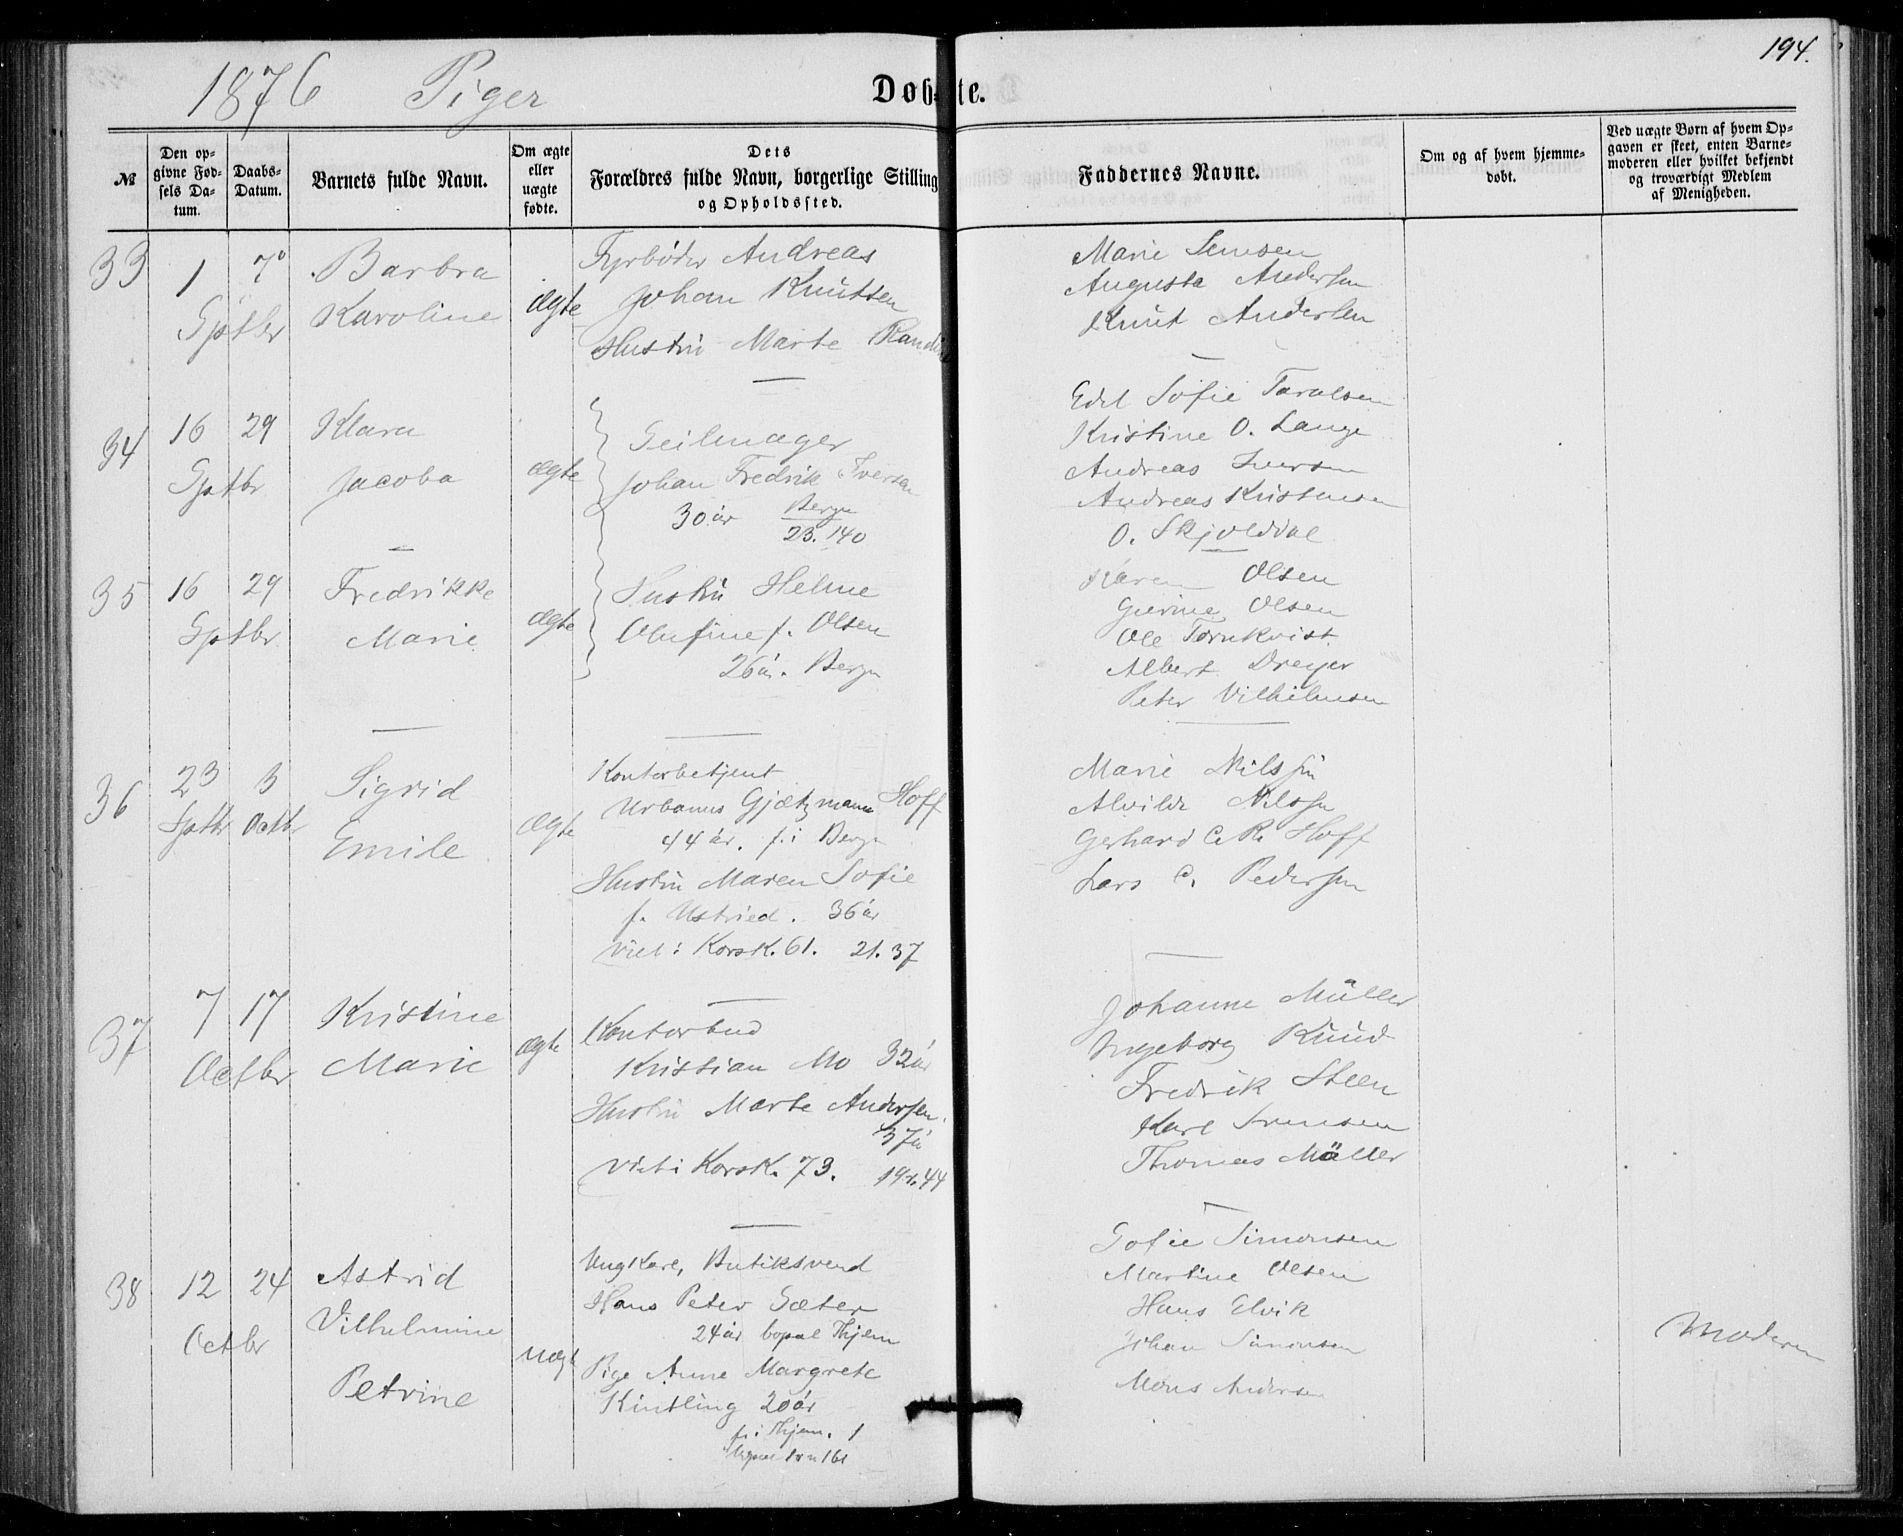 194.
1876 Piger
Døbte.
№
Den op=
givne Fød=
sels Da=
tum.
Daabs=
Datum.
Barnets fulde Navn.
Om ægte
eller
uægte
fødte.
Dets
Forældres fulde Navn, borgerlige Stilling
og Opholdssted.
Faddernes Navne.
Om og af hvem hjemme=
døbt.
Ved uægte Børn af hvem Op=
gaven er skeet, enten Barne=
moderen eller hvilket bekjendt
og troværdigt Medlem
af Menigheden.
33
1
Sptbr
7
Barbra
Karoline
ægte
Fyrbøder Andreas
Johan Knutsen
Hustru Marte
Marie
Augusta Andersen
Knut Andersen
34
16
29
Sptbr
Klara
Jacoba
ægte
Seilmager
Johan Fredrik Iversen
30 år Bergn
23. 140
Edel Sofie Taralsen
Kristine O. Lange
Andreas Iversen
Andreas Kristensen
O. Skjolddal
35
16
29
Sptbr
Fredrikke
Marie
ægte
Hustru Helene
Olufine f. Olsen
26 år. Bergn
Karen Olsen
Gurine Olsen
Ole Tørnkvist
Albert Dreyer
Peter Vilhelmsen
36
23
Sptbr
3
Octbr
Sigrid
Emile
ægte
Kontorbetjent
Urbanus Gjætzmann Hoff
44 år. f. i Bergn
Hustru Maren Sofie
f. Ustried. 36 år
viet i Korsk. 61. 21. 37
Marie Nilssen
Alvilde Nilssen
Gerhard C. R. Hoff
Lars C. Pedersen
37
7
17
Octbr
Kristine
Marie
ægte
Kontorbud
Kristian Mo 32 år
Hustru Marte Andersen.
37 år
Viet i Korsk. 73. 191. 44
Johanne Müller
Ingeborg
Fredrik Steen
Karl
Thomas Müller
38
12
24
Octbr
Astrid
Vilhelmine
Petrine
uægt
Ungkarl, Butiksvend
Hans Peter Sæter
24 år bopæl Thjem
Pige Anne Margrete
Kintling 20 år
f. i Thjem. 1
161
Sofie Simonsen
Martine Olsen
Hans Elvik
Johan Simonsen
Mons Andersen
Moderen